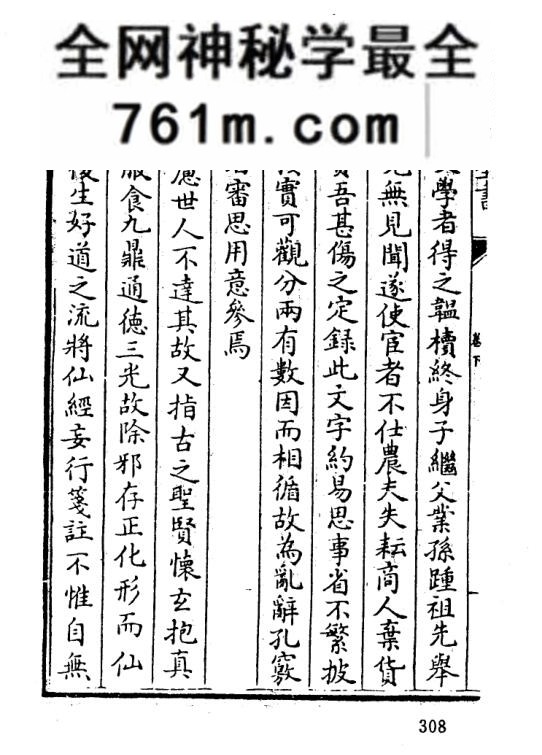 全网神秘学最全
761m.com
學者得之韞櫝終身子繼父業孫踵祖先舉
無見聞遂使宦者不仕農夫失耘商人棄貨
吾甚傷之定錄此文字約易思事省不繁披
實可觀分兩有數因而相循故為亂辭孔竅
審思用意參焉
慮世人不達其故又指古之聖賢懷玄抱真
服食九鼎通德三光故除邪存正化形而仙
後生好道之流將仙經妄行箋註不惟自無
卷下
308